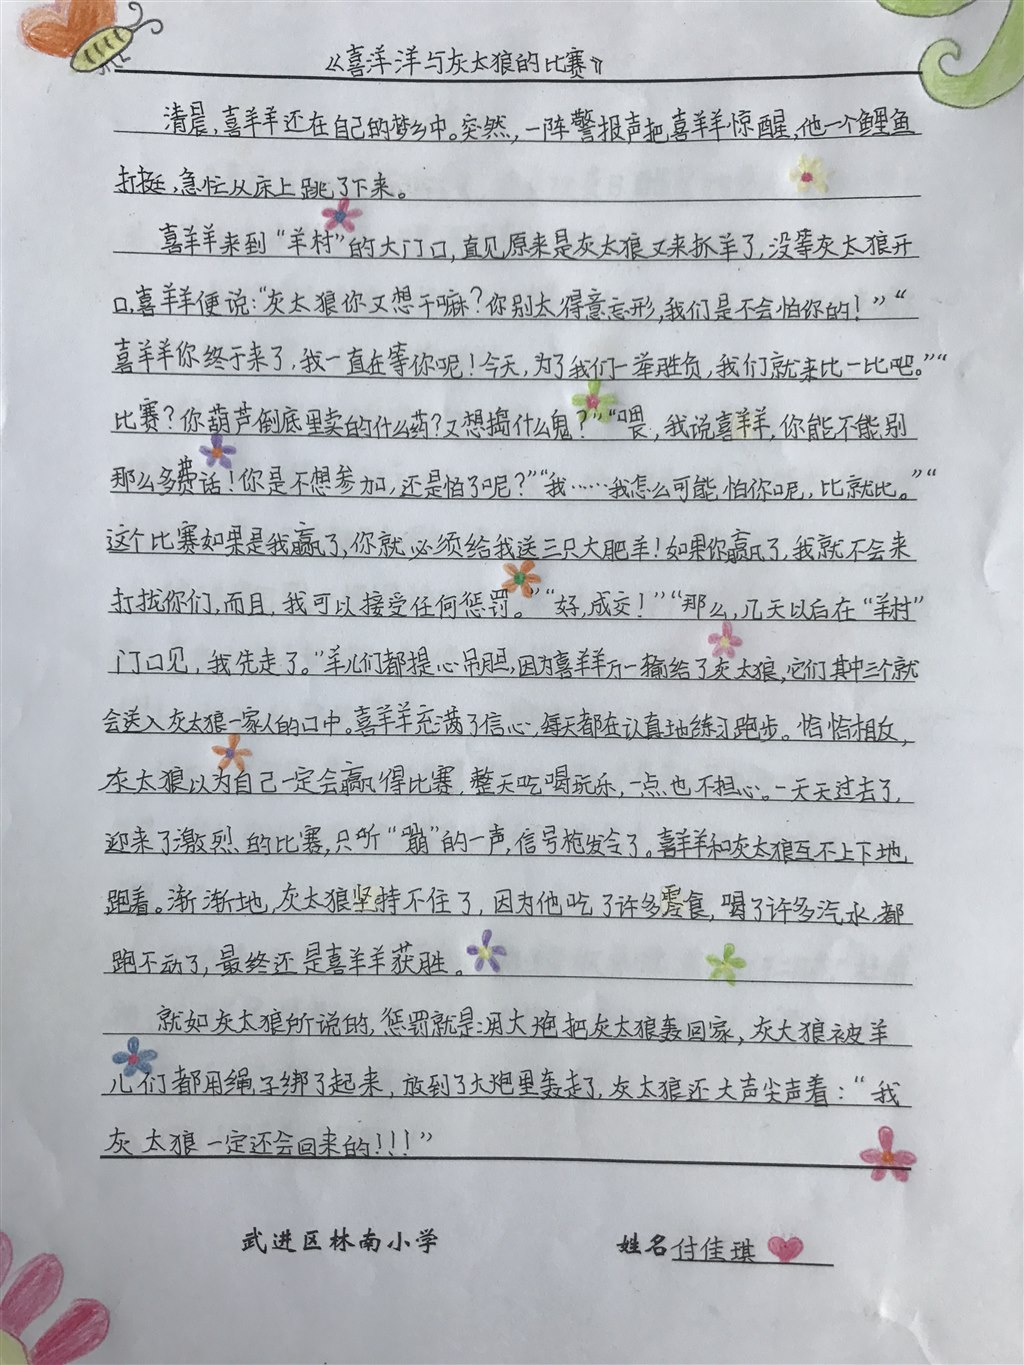 《喜洋洋与灰太狼的比赛》
清晨，喜羊羊还在自己的梦乡中。突然，一阵警报声把喜羊羊惊醒，他一个鲤鱼
打挺，急忙从床上跳了下来。
喜羊羊来到“羊村”的大门口，直见原来是灰太狼又来抓羊了，没等灰太狼开
口，喜羊羊便说：“灰太狼你又想干嘛？你别太得意忘形，我们是不会怕你的！”“
喜羊羊你终于来了，我一直在等你呢！今天，为了我们一举胜负，我们就来比一比吧。”“
比赛？你葫芦倒底里卖的什么药？又想捣什么鬼？”“喂，我说喜羊羊，你能不能别
那么多费话！你是不想参加，还是怕了呢？”“我……我怎么可能怕你呢，比就比。”“
这个比赛如果是我赢了，你就必须给我送三只大肥羊！如果你赢了，我就不会来
打扰你们，而且，我可以接受任何惩罚。”“好，成交！”“那么，几天以后在“羊村”
门口见，我先走了。”羊儿们都提心吊胆，因为喜羊羊万一输给了灰太狼，它们其中三个就
会送入灰太狼一家人的口中。喜羊羊充满了信心，每天都在认真地练习跑步。恰恰相反，
灰太狼以为自己一定会赢得比赛，整天吃喝玩乐，一点也不担心。一天天过去了，
迎来了激烈的比赛，只听“嘣”的一声，信号枪发令了。喜羊羊和灰太狼互不上下地
跑着。渐渐地，灰太狼坚持不住了，因为他吃了许多零食，喝了许多汽水，都
跑不动了，最终还是喜羊羊获胜。
就如灰太狼所说的，惩罚就是：用大炮把灰太狼轰回家，灰大狼被羊
儿们都用绳子绑了起来，放到了大炮里轰走了，灰太狼还大声尖声着：“我
灰太狼一定还会回来的！！！”
武进区林南小学 姓名付佳琪